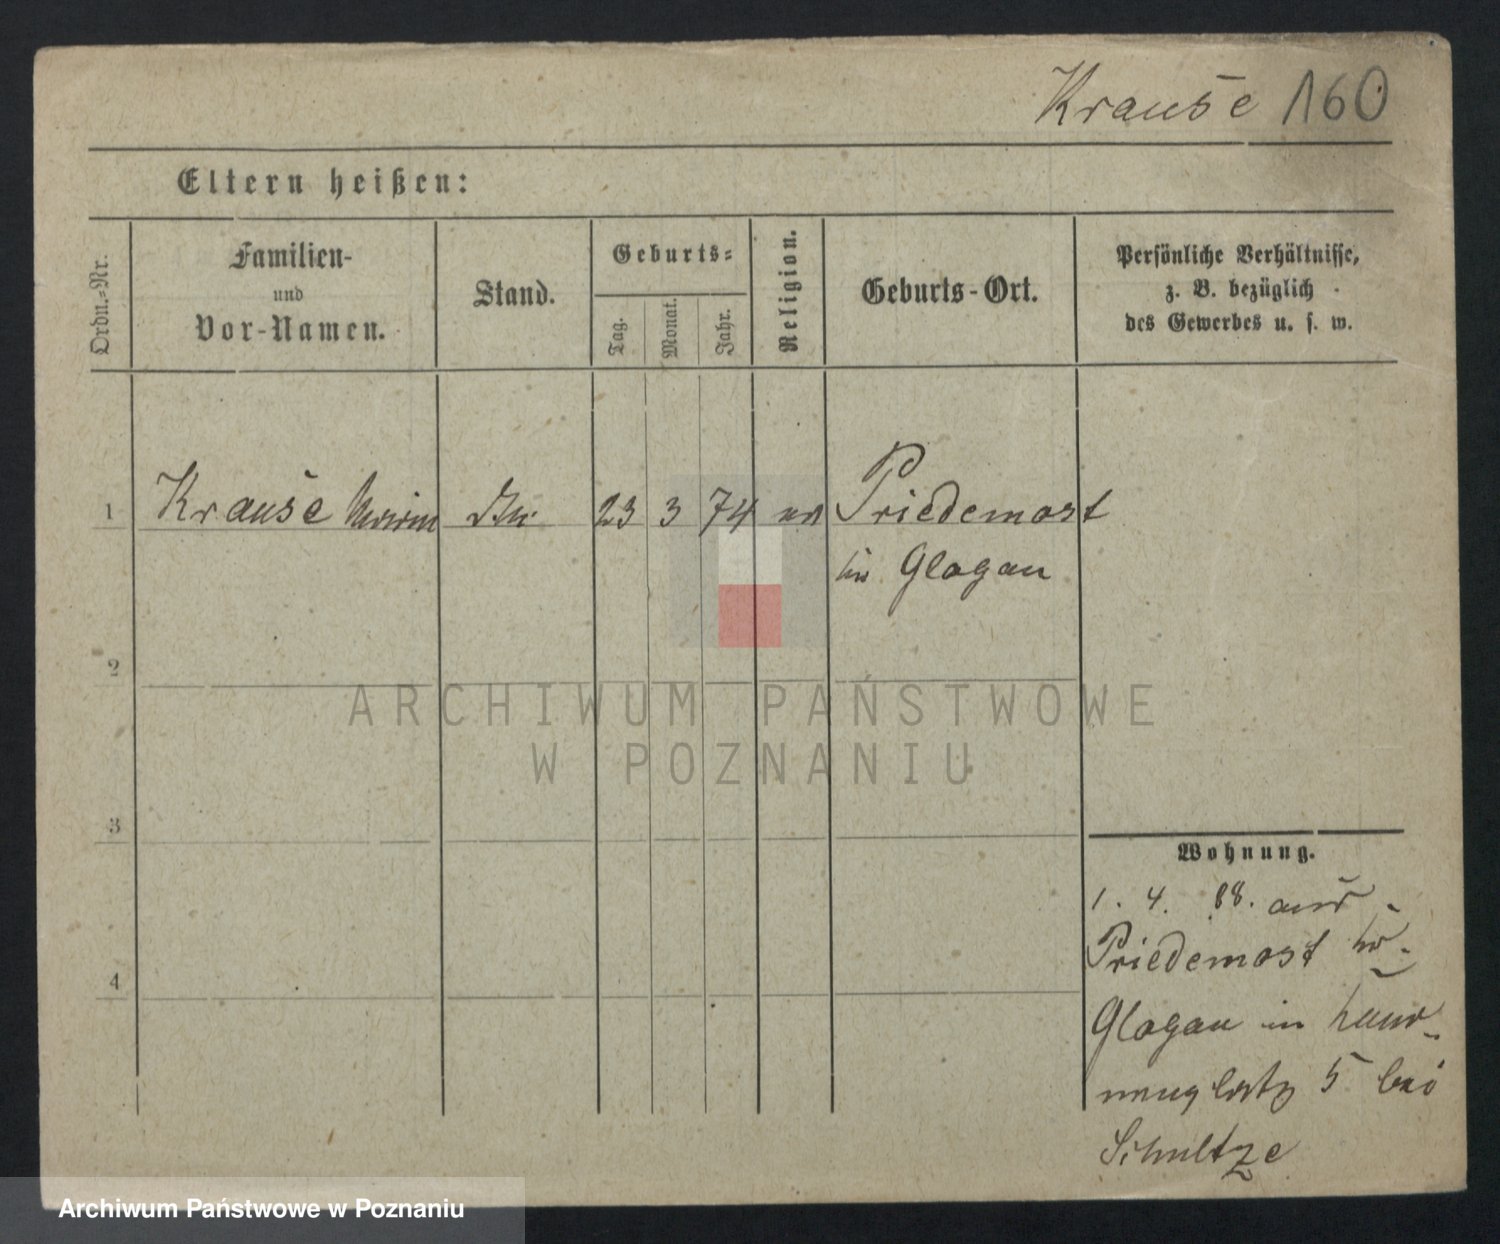 Krause 160
Eltern heißen:
Ordn.=Nr.
Familien-
und
Vor-Namen.
Stand.
Geburts=
Tag.
Monat.
Jahr.
Religion.
Geburts-Ort.
Persönliche Verhältnisse,
z. B. bezüglich
des Gewerbes u. s. w.
1 Krause 23 3 74 Priedemost
Glogau
2
ARCHIWUM PAŃSTWOWE
W POZNANIU
3
Wohnung.
1. 4. 88. aus
Priedemost
4
Glogau in
5 bei
Schultze
Archiwum Państwowe w Poznaniu